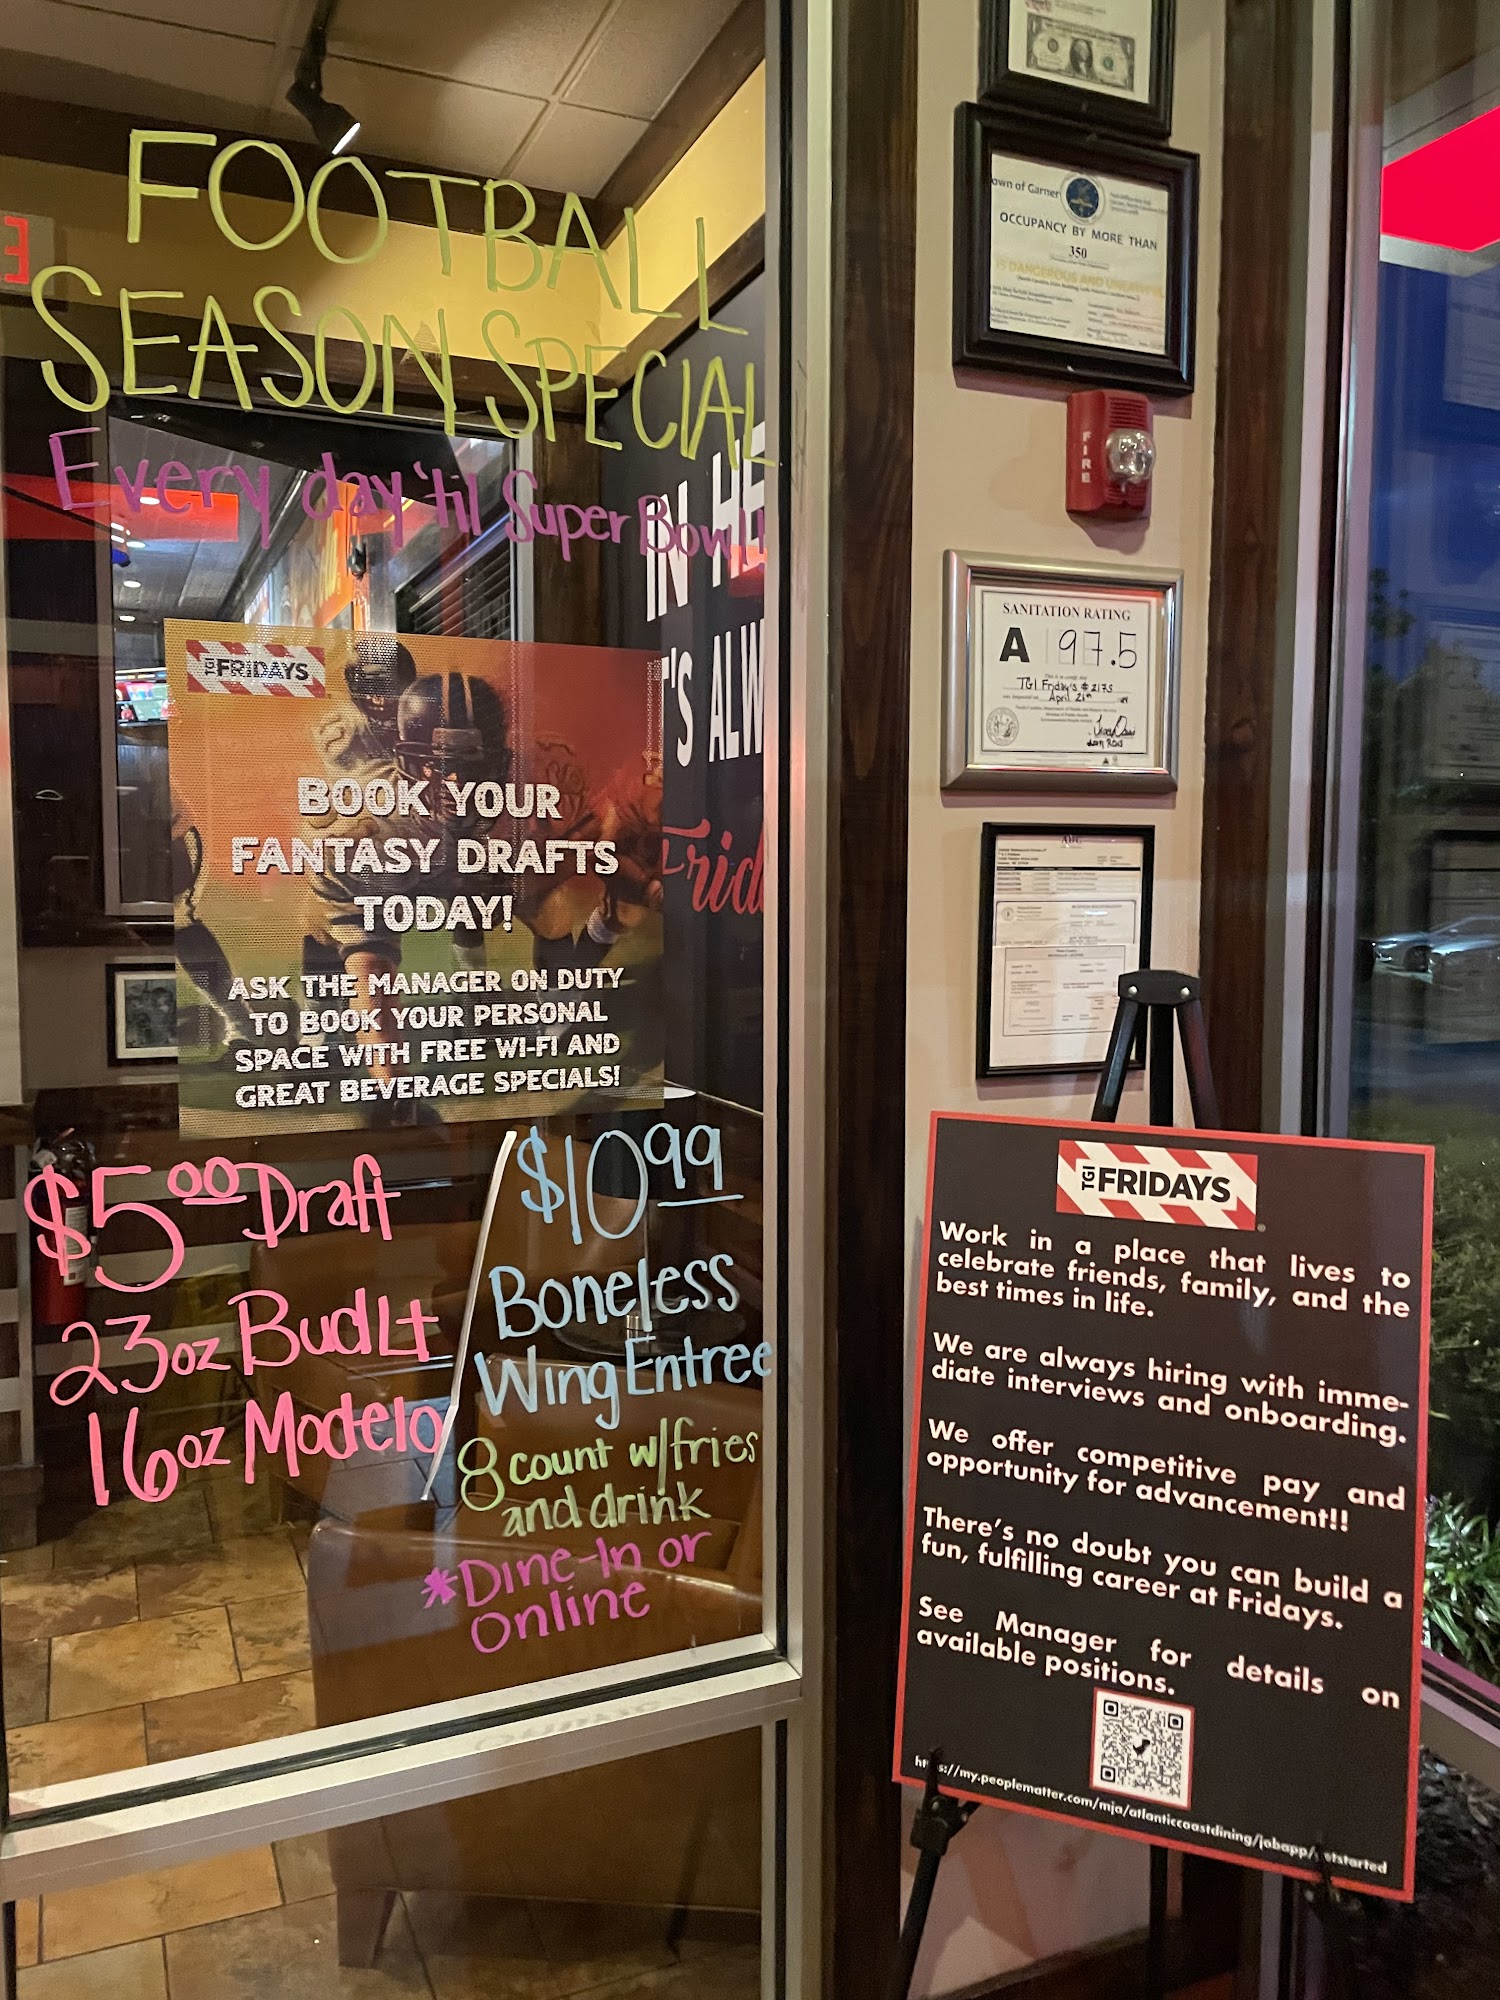 FOOTBALL
SEASON SPECIAL
Every day 'til Super Bowl!
TGI FRIDAYS
BOOK YOUR
FANTASY DRAFTS
TODAY!
ASK THE MANAGER ON DUTY
TO BOOK YOUR PERSONAL
SPACE WITH FREE WI-FI AND
GREAT BEVERAGE SPECIALS!
$5.00 Draft
23oz Bud Lt
16oz Modelo
$10.99
Boneless
Wing Entree
8 count w/fries
and drink
*Dine-In or
Online
IN HE
'S ALW
Frid
own of Garner
OCCUPANCY BY MORE THAN
350
IS DANGEROUS AND UNLAWFUL
FIRE
SANITATION RATING
A 97.5
TGI Friday's #2175
April 21st
TGI FRIDAYS
Work in a place that lives to
celebrate friends, family, and the
best times in life.
We are always hiring with imme-
diate interviews and onboarding.
We offer competitive pay and
opportunity for advancement!!
There's no doubt you can build a
fun, fulfilling career at Fridays.
See Manager for details on
available positions.
https://my.peoplematter.com/mja/atlanticcoastdining/jobapp/getstarted